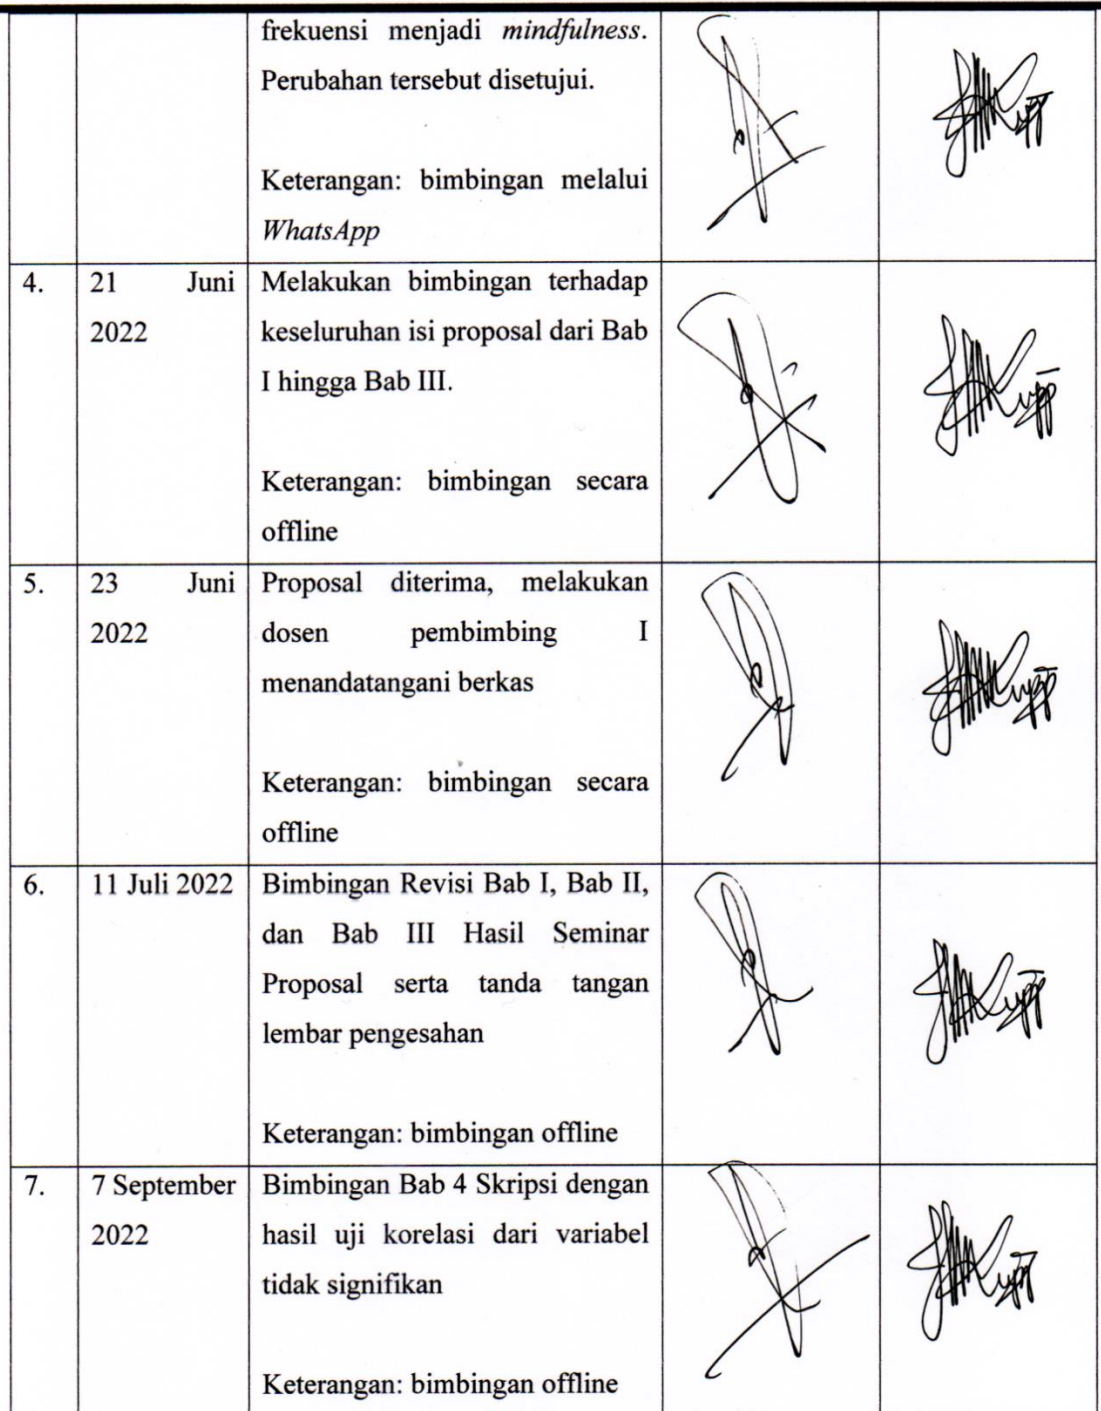 frekuensi menjadi mindfulness.
Perubahan tersebut disetujui.
Keterangan: bimbingan melalui
WhatsApp
4. 21 Juni Melakukan bimbingan terhadap
2022 keseluruhan isi proposal dari Bab
I hingga Bab III.
Keterangan: bimbingan secara
offline
5. 23 Juni Proposal diterima, melakukan
2022 dosen pembimbing I
menandatangani berkas
Keterangan: bimbingan secara
offline
6. 11 Juli 2022 Bimbingan Revisi Bab I, Bab II,
dan Bab III Hasil Seminar
Proposal serta tanda tangan
lembar pengesahan
Keterangan: bimbingan offline
7. 7 September Bimbingan Bab 4 Skripsi dengan
2022 hasil uji korelasi dari variabel
tidak signifikan
Keterangan: bimbingan offline